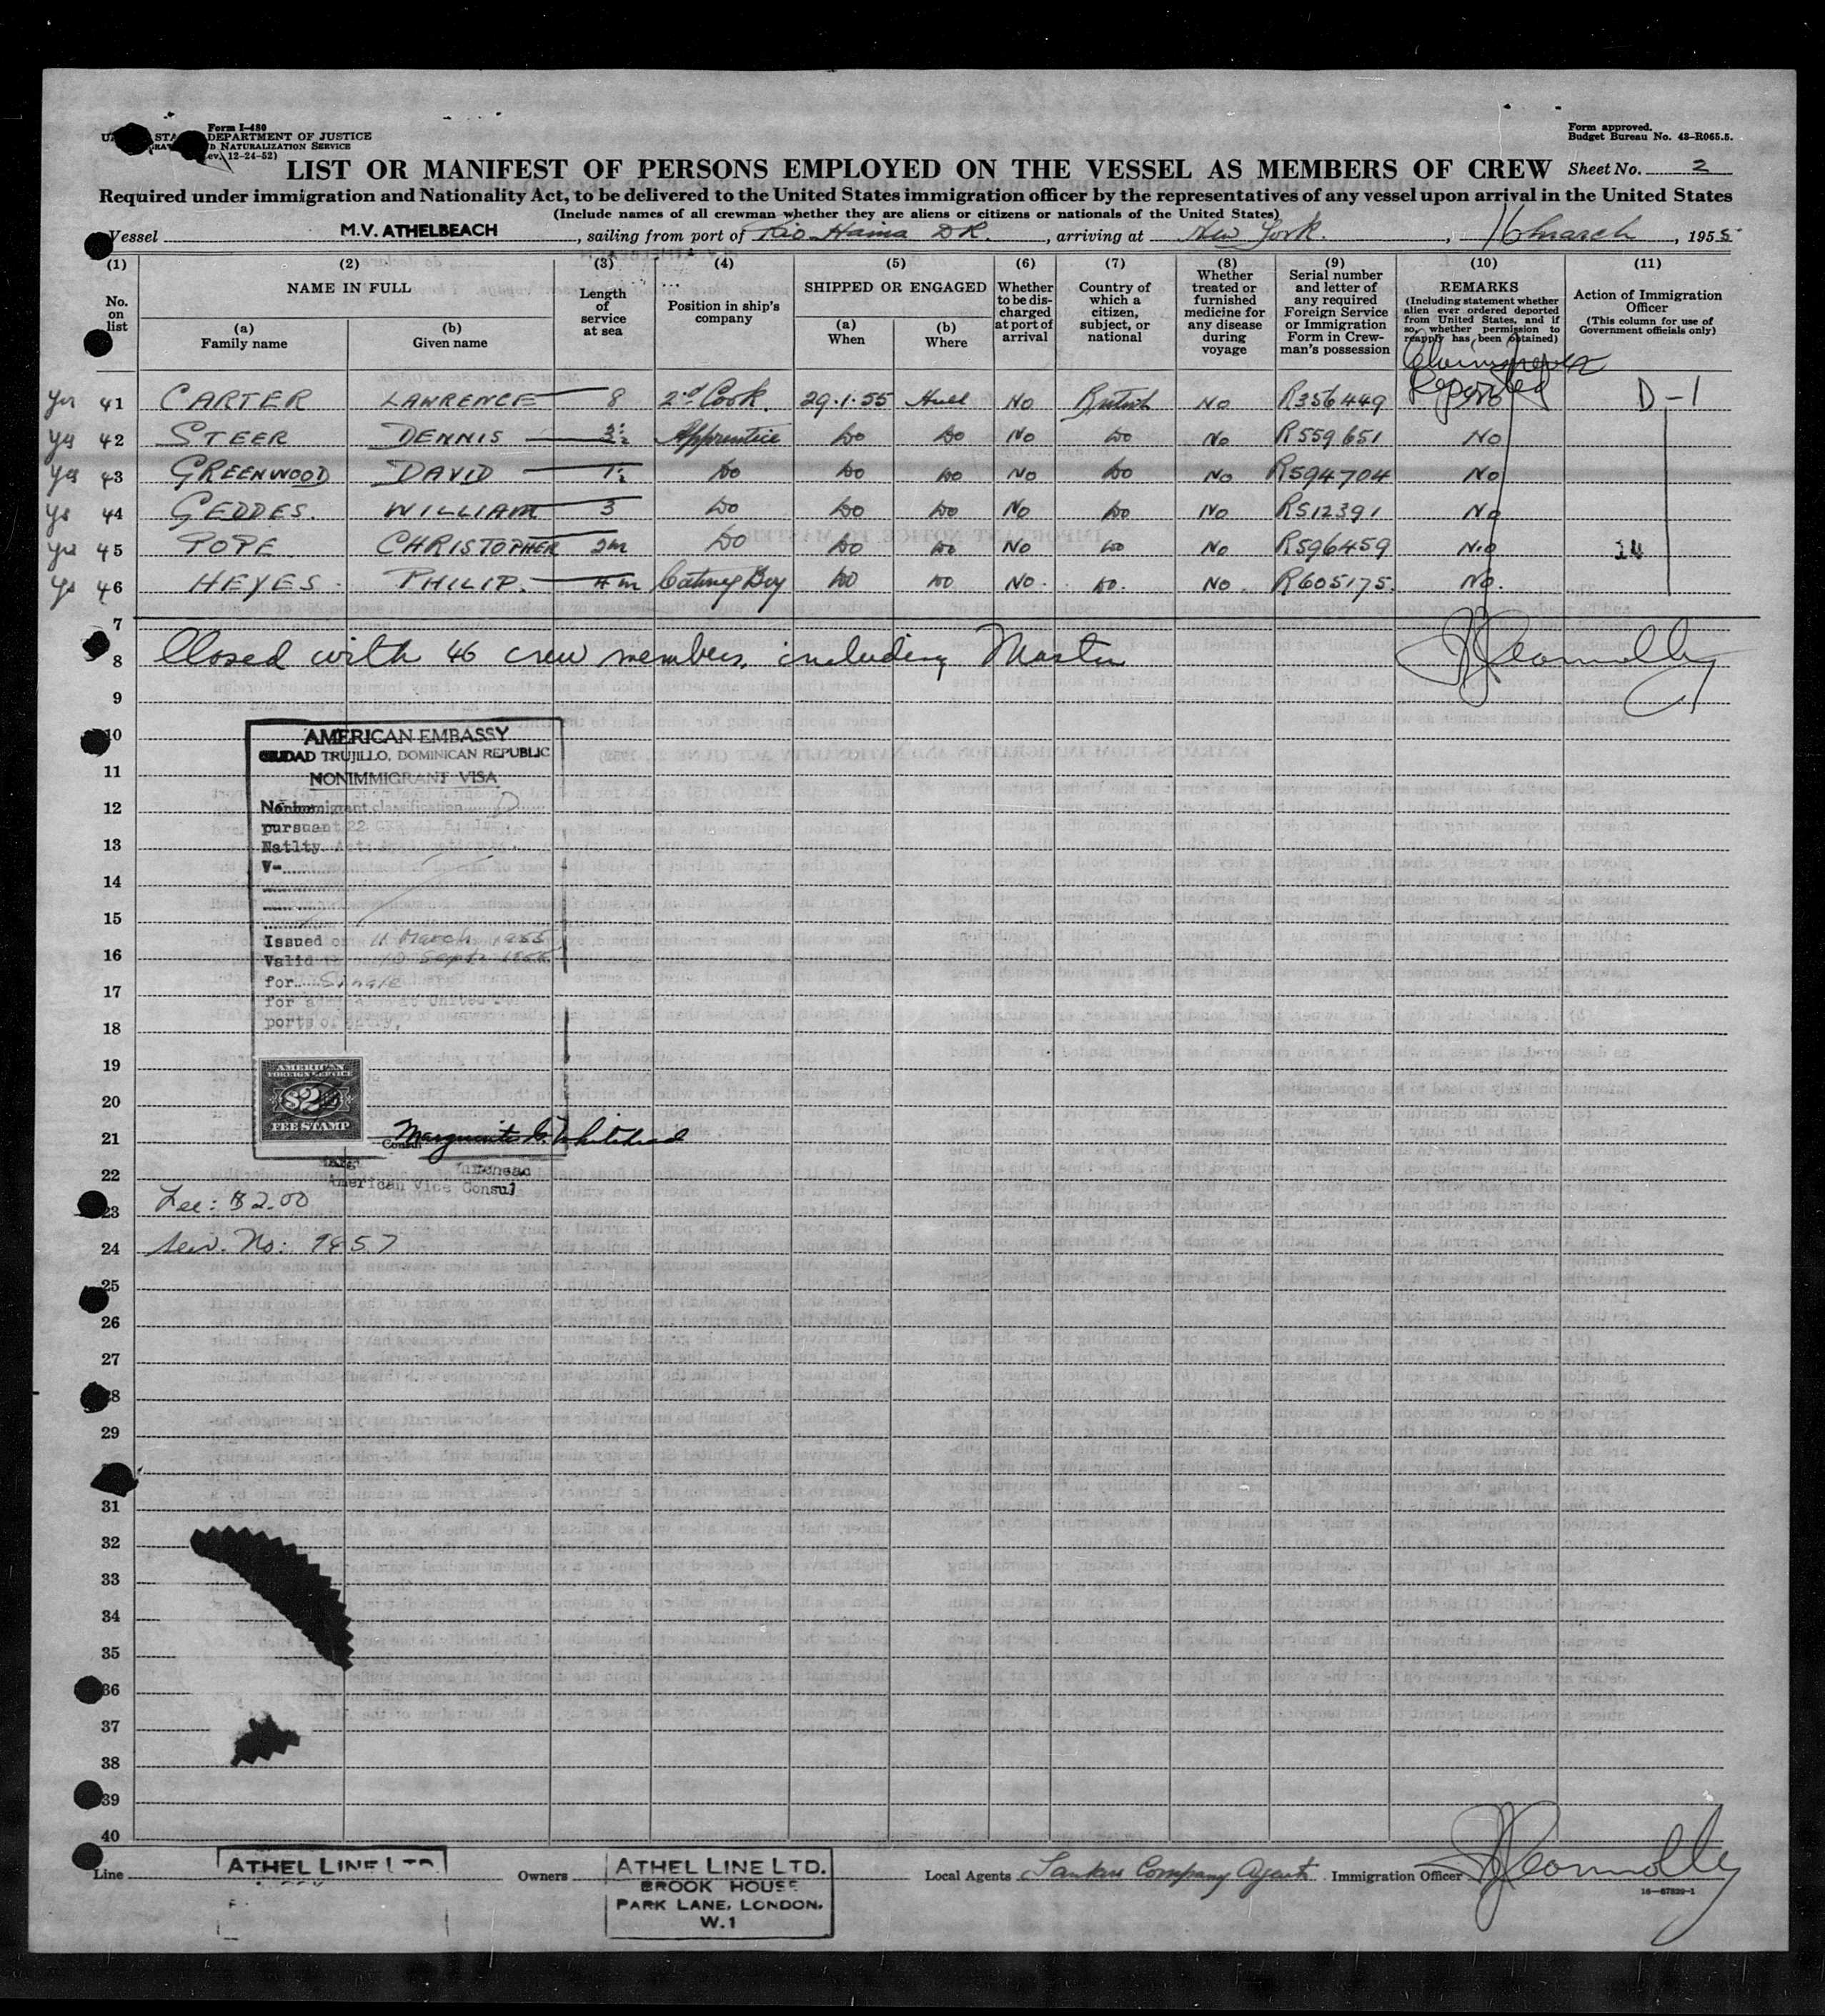 Form I-480
DEPARTMENT OF JUSTICE
NATURALIZATION SERVICE
12-24-52)
Form approved.
Budget Bureau No. 43-R065.5.
LIST OR MANIFEST OF PERSONS EMPLOYED ON THE VESSEL AS MEMBERS OF CREW Sheet No. 2
Required under immigration and Nationality Act, to be delivered to the United States immigration officer by the representatives of any vessel upon arrival in the United States
(Include names of all crewman whether they are aliens or citizens or nationals of the United States)
Vessel M.V. ATHELBEACH, sailing from port of Rio Haina DR., arriving at New York., 16 March, 1955
(1) (2) (3) (4) (5) (6) (7) (8) (9) (10) (11)
No. on list
NAME IN FULL
(a) Family name
(b) Given name
Length of service at sea
Position in ship's company
SHIPPED OR ENGAGED
(a) When
(b) Where
Whether to be discharged at port of arrival
Country of which a citizen, subject, or national
Whether treated or furnished medicine for any disease during voyage
Serial number and letter of any required Foreign Service or Immigration Form in Crewman's possession
REMARKS
(Including statement whether alien ever ordered deported from United States, and if so, whether permission to reapply has been obtained)
Action of Immigration Officer
(This column for use of Government officials only)
Yes 41 CARTER LAWRENCE 8 2nd Cook. 29.1.55 Hull No British No R356449 No D-1
Yes 42 STEER DENNIS 3½ Apprentice Do Do No Do No R559651 No
Yes 43 GREENWOOD DAVID 1½ Do Do Do No Do No R594704 No
Ys 44 GEDDES. WILLIAM 3 Do Do Do No Do No R512391 No
Yes 45 POPE CHRISTOPHER 2m Do Do Do No Do No R596459 No
Ys 46 HEYES. PHILIP. 4m Catering Boy Do Do No. Do. No. R605175. No.
7
8 Closed with 46 crew members, including Master
9
10
11
12
13
14
15
16
17
18
19
20
21
22
23
24
25
26
27
28
29
31
32
33
34
35
36
37
38
39
40
AMERICAN EMBASSY
CIUDAD TRUJILLO, DOMINICAN REPUBLIC
NONIMMIGRANT VISA
Nonimmigrant classification
pursuant 22
Natlty. Act
V-
Issued on 11 March 1955
Valid
for Single
ports of entry,
AMERICAN
FOREIGN SERVICE
$2
FEE STAMP
Marguerite C. Whitehead
Consul
American Vice Consul
Fee: $2.00
Serv. No: 1957
Line ATHEL LINE LTD.
Owners ATHEL LINE LTD.
BROOK HOUSE
PARK LANE, LONDON.
W.1
Local Agents Tankers Company Agents
Immigration Officer
16-67829-1